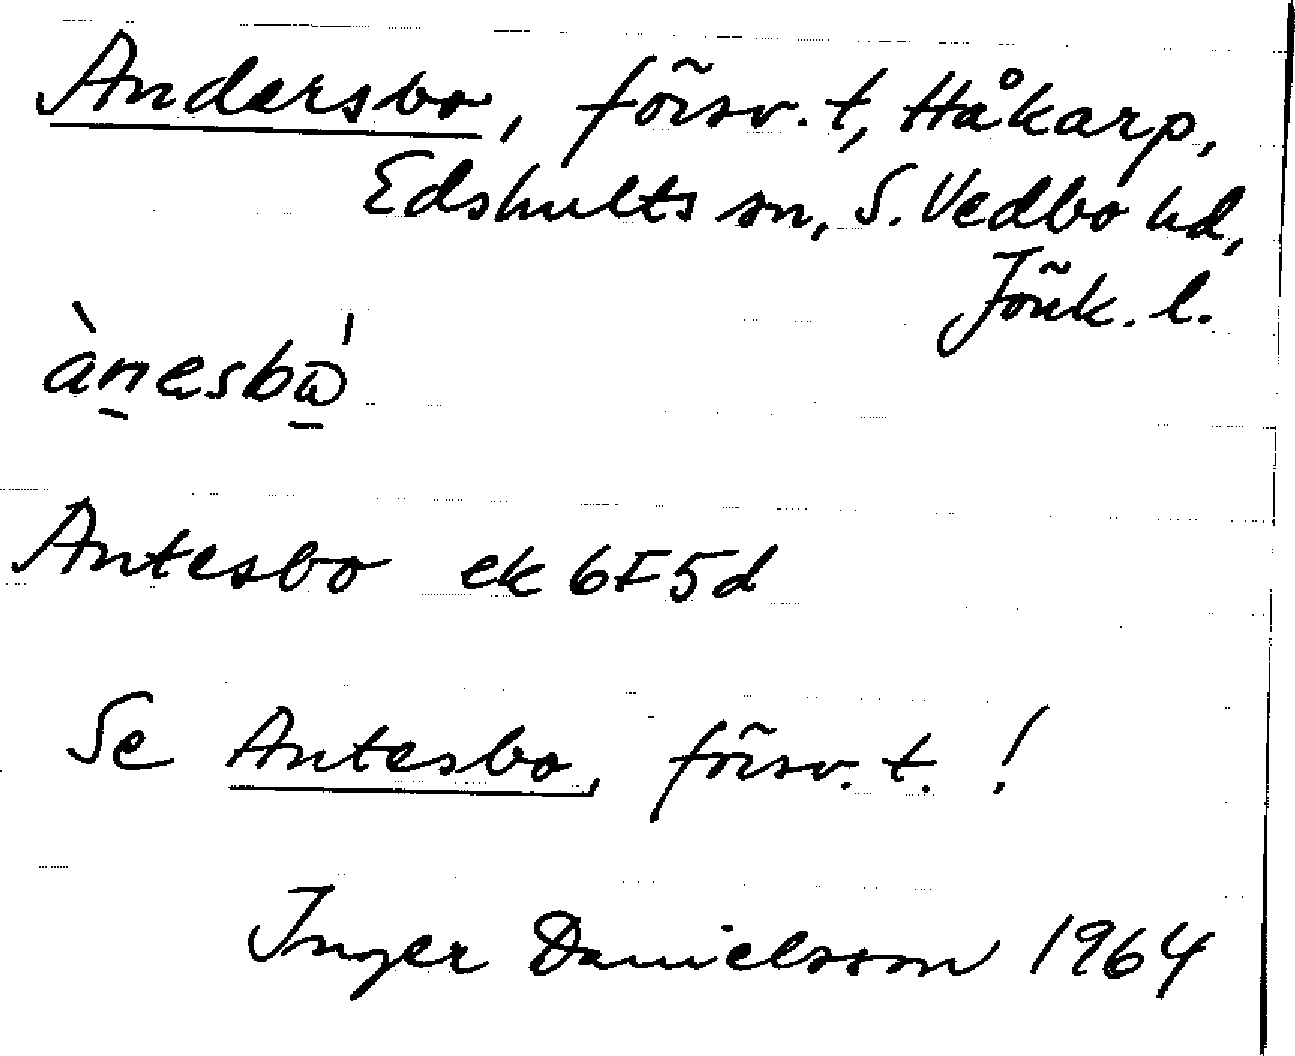 Andersbo, försv. t, Håkarp,
Edshults sn, S. Vedbo hd,
Jönk. l.
Antesbo ek 6F5d
Se Antesbo, försv. t. !
Inger Danielsson 1964